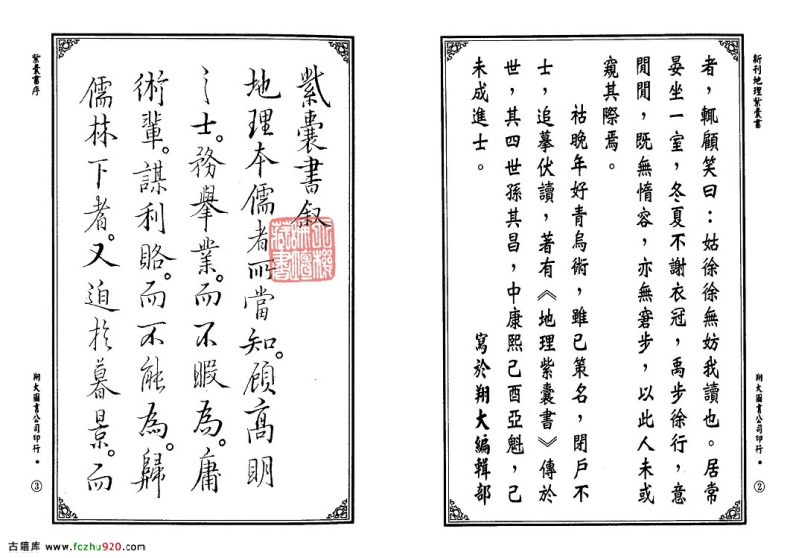 新刊地理紫囊書
者，輒顧笑曰：姑徐徐無妨我讀也。居常
晏坐一室，冬夏不謝衣冠，禹步徐行，意
閒閒，既無惰容，亦無窘步，以此人未或
窺其際焉。
祜晚年好青烏術，雖已策名，閉戶不
士，追摹伏讀，著有《地理紫囊書》傳於
世，其四世孫其昌，中康熙己酉亞魁，己
未成進士。
寫於翔大編輯部
翔大圖書公司印行・
②
紫囊書叙
地理本儒者所當知。顧高明
之士。務舉業。而不暇為。庸
術輩。謀利賂。而不能為。歸
儒林下者。又迫於暮景。而
紫囊書序
翔大圖書公司印行・
③
古籍库 www.fczhu920.com